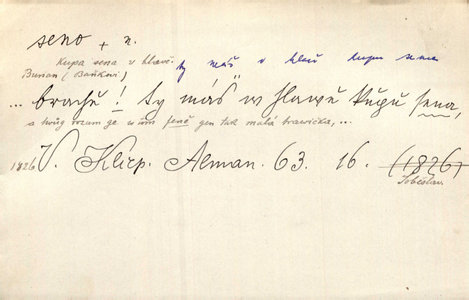 seno + n.
Kupa sena v hlavě. ty máš v hlavě kupu sena
Burian (Baňkovi)
... brachě! ty máš w hlawě kupu sena,
a twůg rozum ge w něm geně gen tak malá trawička, ...
1826 V. Klicp. Alman. 63. 16. (1826)
Soběslav.